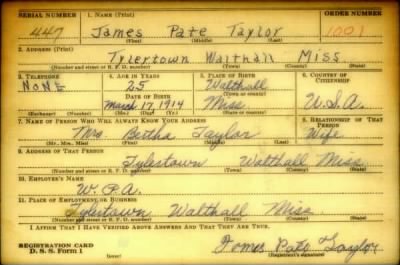 SERIAL NUMBER 1. NAME (Print) ORDER NUMBER
447 James Pate Taylor 1001
(First) (Middle) (Last)
2. ADDRESS (Print)
Tylertown Walthall Miss
(Number and street or R. F. D. number) (Town) (County) (State)
3. TELEPHONE 4. AGE IN YEARS 5. PLACE OF BIRTH 6. COUNTRY OF CITIZENSHIP
NONE 25 Walthall
DATE OF BIRTH (Town or county)
March 17, 1914 Miss U.S.A.
(Exchange) (Number) (Mo.) (Day) (Yr.) (State or country)
7. NAME OF PERSON WHO WILL ALWAYS KNOW YOUR ADDRESS 8. RELATIONSHIP OF THAT PERSON
Mrs Bertha Taylor Wife
(Mr., Mrs., Miss) (First) (Middle) (Last)
9. ADDRESS OF THAT PERSON
Tylertown Walthall Miss
(Number and street or R. F. D. number) (Town) (County) (State)
10. EMPLOYER'S NAME
W.P.A.
11. PLACE OF EMPLOYMENT OR BUSINESS
Tylertown Walthall Miss
(Number and street or R. F. D. number) (Town) (County) (State)
I AFFIRM THAT I HAVE VERIFIED ABOVE ANSWERS AND THAT THEY ARE TRUE.
REGISTRATION CARD James Pate Taylor
D. S. S. FORM 1 (over) (Registrant's signature)